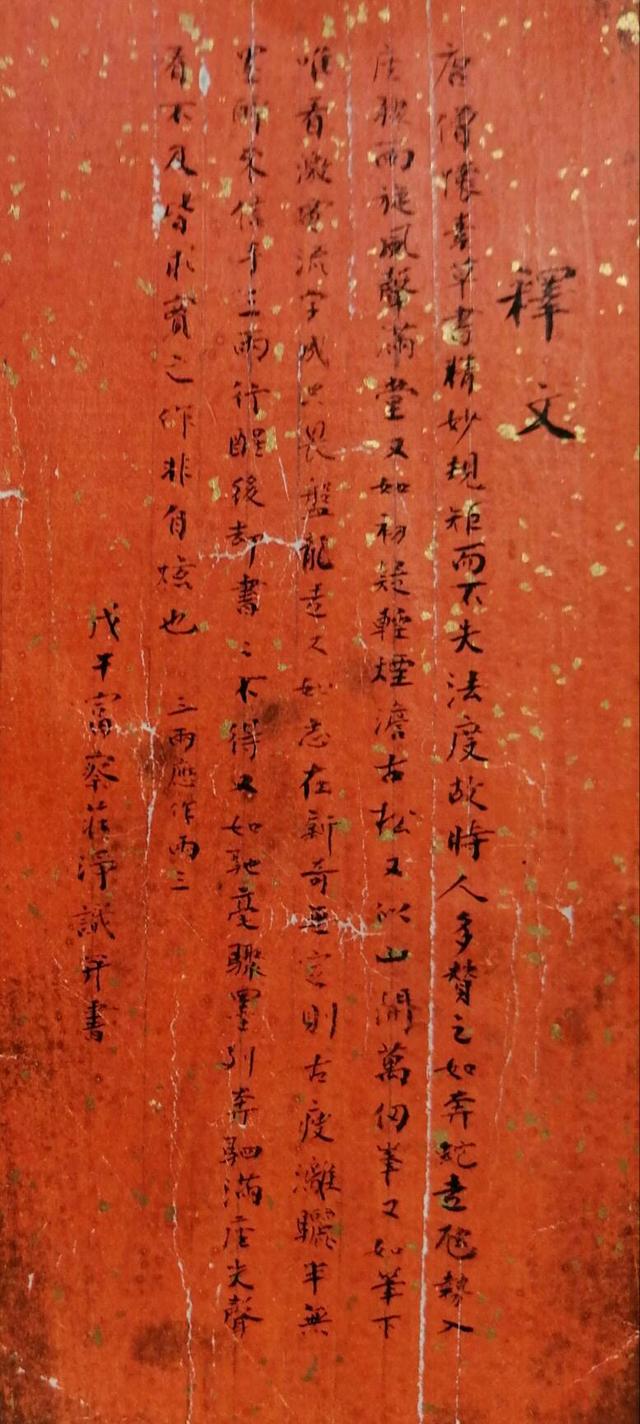 釋文
唐僧懷素草書精妙規矩而不失法度故時人多贊之如奔蛇走虺勢入
座驟雨旋風聲滿堂又如初疑輕煙澹古松又似山開萬仞峯又如筆下
唯看激電流字成只畏盤龍走又如志在新奇無定則古瘦漓驪半無
墨醉來信手三兩行醒後却書〻不得又如馳毫驟墨列奔駟滿座失聲
看不及皆求實之作非自炫也 三兩應作兩三
戊午富察莊淨識并書